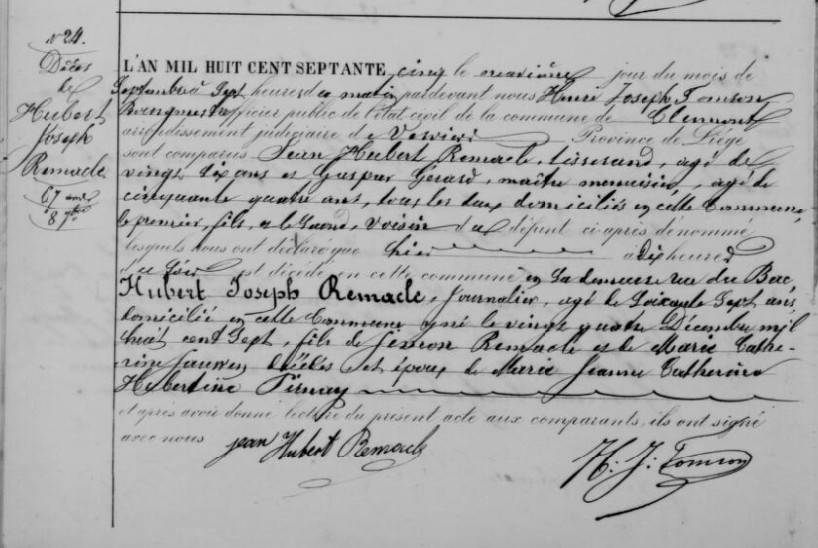 N° 24.
Décès
de
Hubert
Joseph
Remacle
67 ans
8 7bre
L'AN MIL HUIT CENT SEPTANTE cinq le neuvième jour du mois de
Septembre à Sept heures du matin pardevant nous Henri Joseph Tomson
Bourgmestre officier public de l'état civil de la commune de Clermont
arrondissement judiciaire de Verviers Province de Liége
sont comparus Jean Hubert Remacle, tisserand, agé de
vingt ans et Gaspar Gerard, maître menuisier, agé de
cinquante quatre ans, tous les deux domiciliés en cette Commune,
le premier, fils, et le second, voisin du défunt ci-après dénommé
lesquels nous ont déclaré que hier à dix heures
du soir est décédé en cette commune en sa demeure rue du Bac,
Hubert Joseph Remacle, Journalier, agé de soixante Sept ans,
domicilié en cette Commune, né le vingt quatre Décembre mil
huit cent Sept, fils de Simon Remacle et de Marie Cathe-
rine décédés et époux de Marie Jeanne Catherine
Hubertine
et après avoir donné lecture du présent acte aux comparants, ils ont signé
avec nous Jean Hubert Remacle
H. J. Tomson